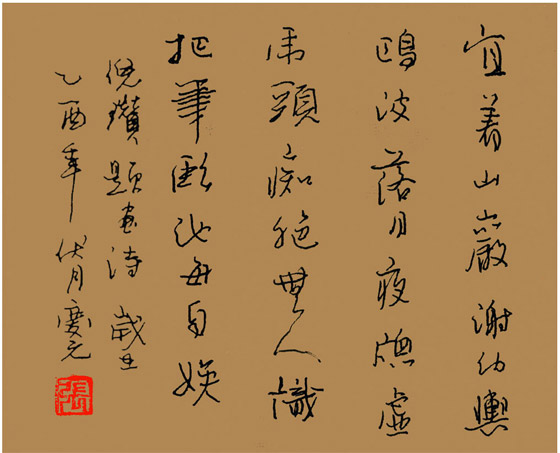 宜着山巖謝幼輿
鷗波落月夜牕虛
虎頭痴絕無人識
把筆臨池每自娱
倪瓚題畫詩 歲在
乙酉年伏月慶元
張